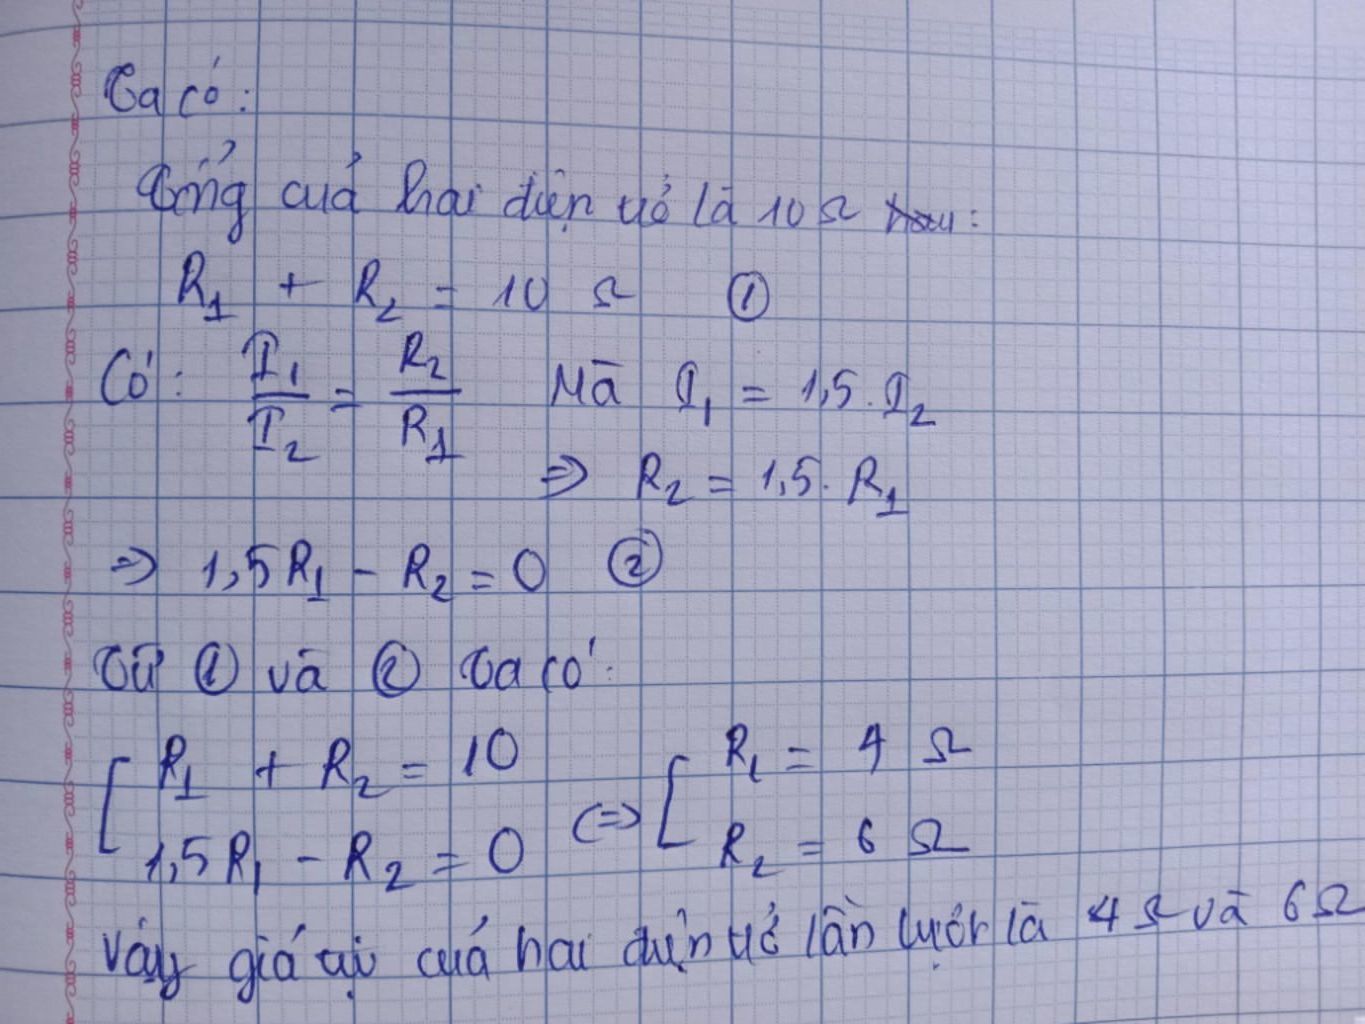 Ta có:
Tổng cuả hai điện trở là 10Ω :
R₁ + R₂ = 10 Ω ①
Có: I₁/I₂ = R₂/R₁ Mà I₁ = 1,5. I₂
=> R₂ = 1,5. R₁
=> 1,5R₁ - R₂ = 0 ②
Từ ① và ② ta có:
[ R₁ + R₂ = 10 <=> [ R₁ = 4 Ω
1,5R₁ - R₂ = 0 R₂ = 6 Ω
Vậy giá trị cuả hai điện trở lần lượt là 4Ω và 6Ω